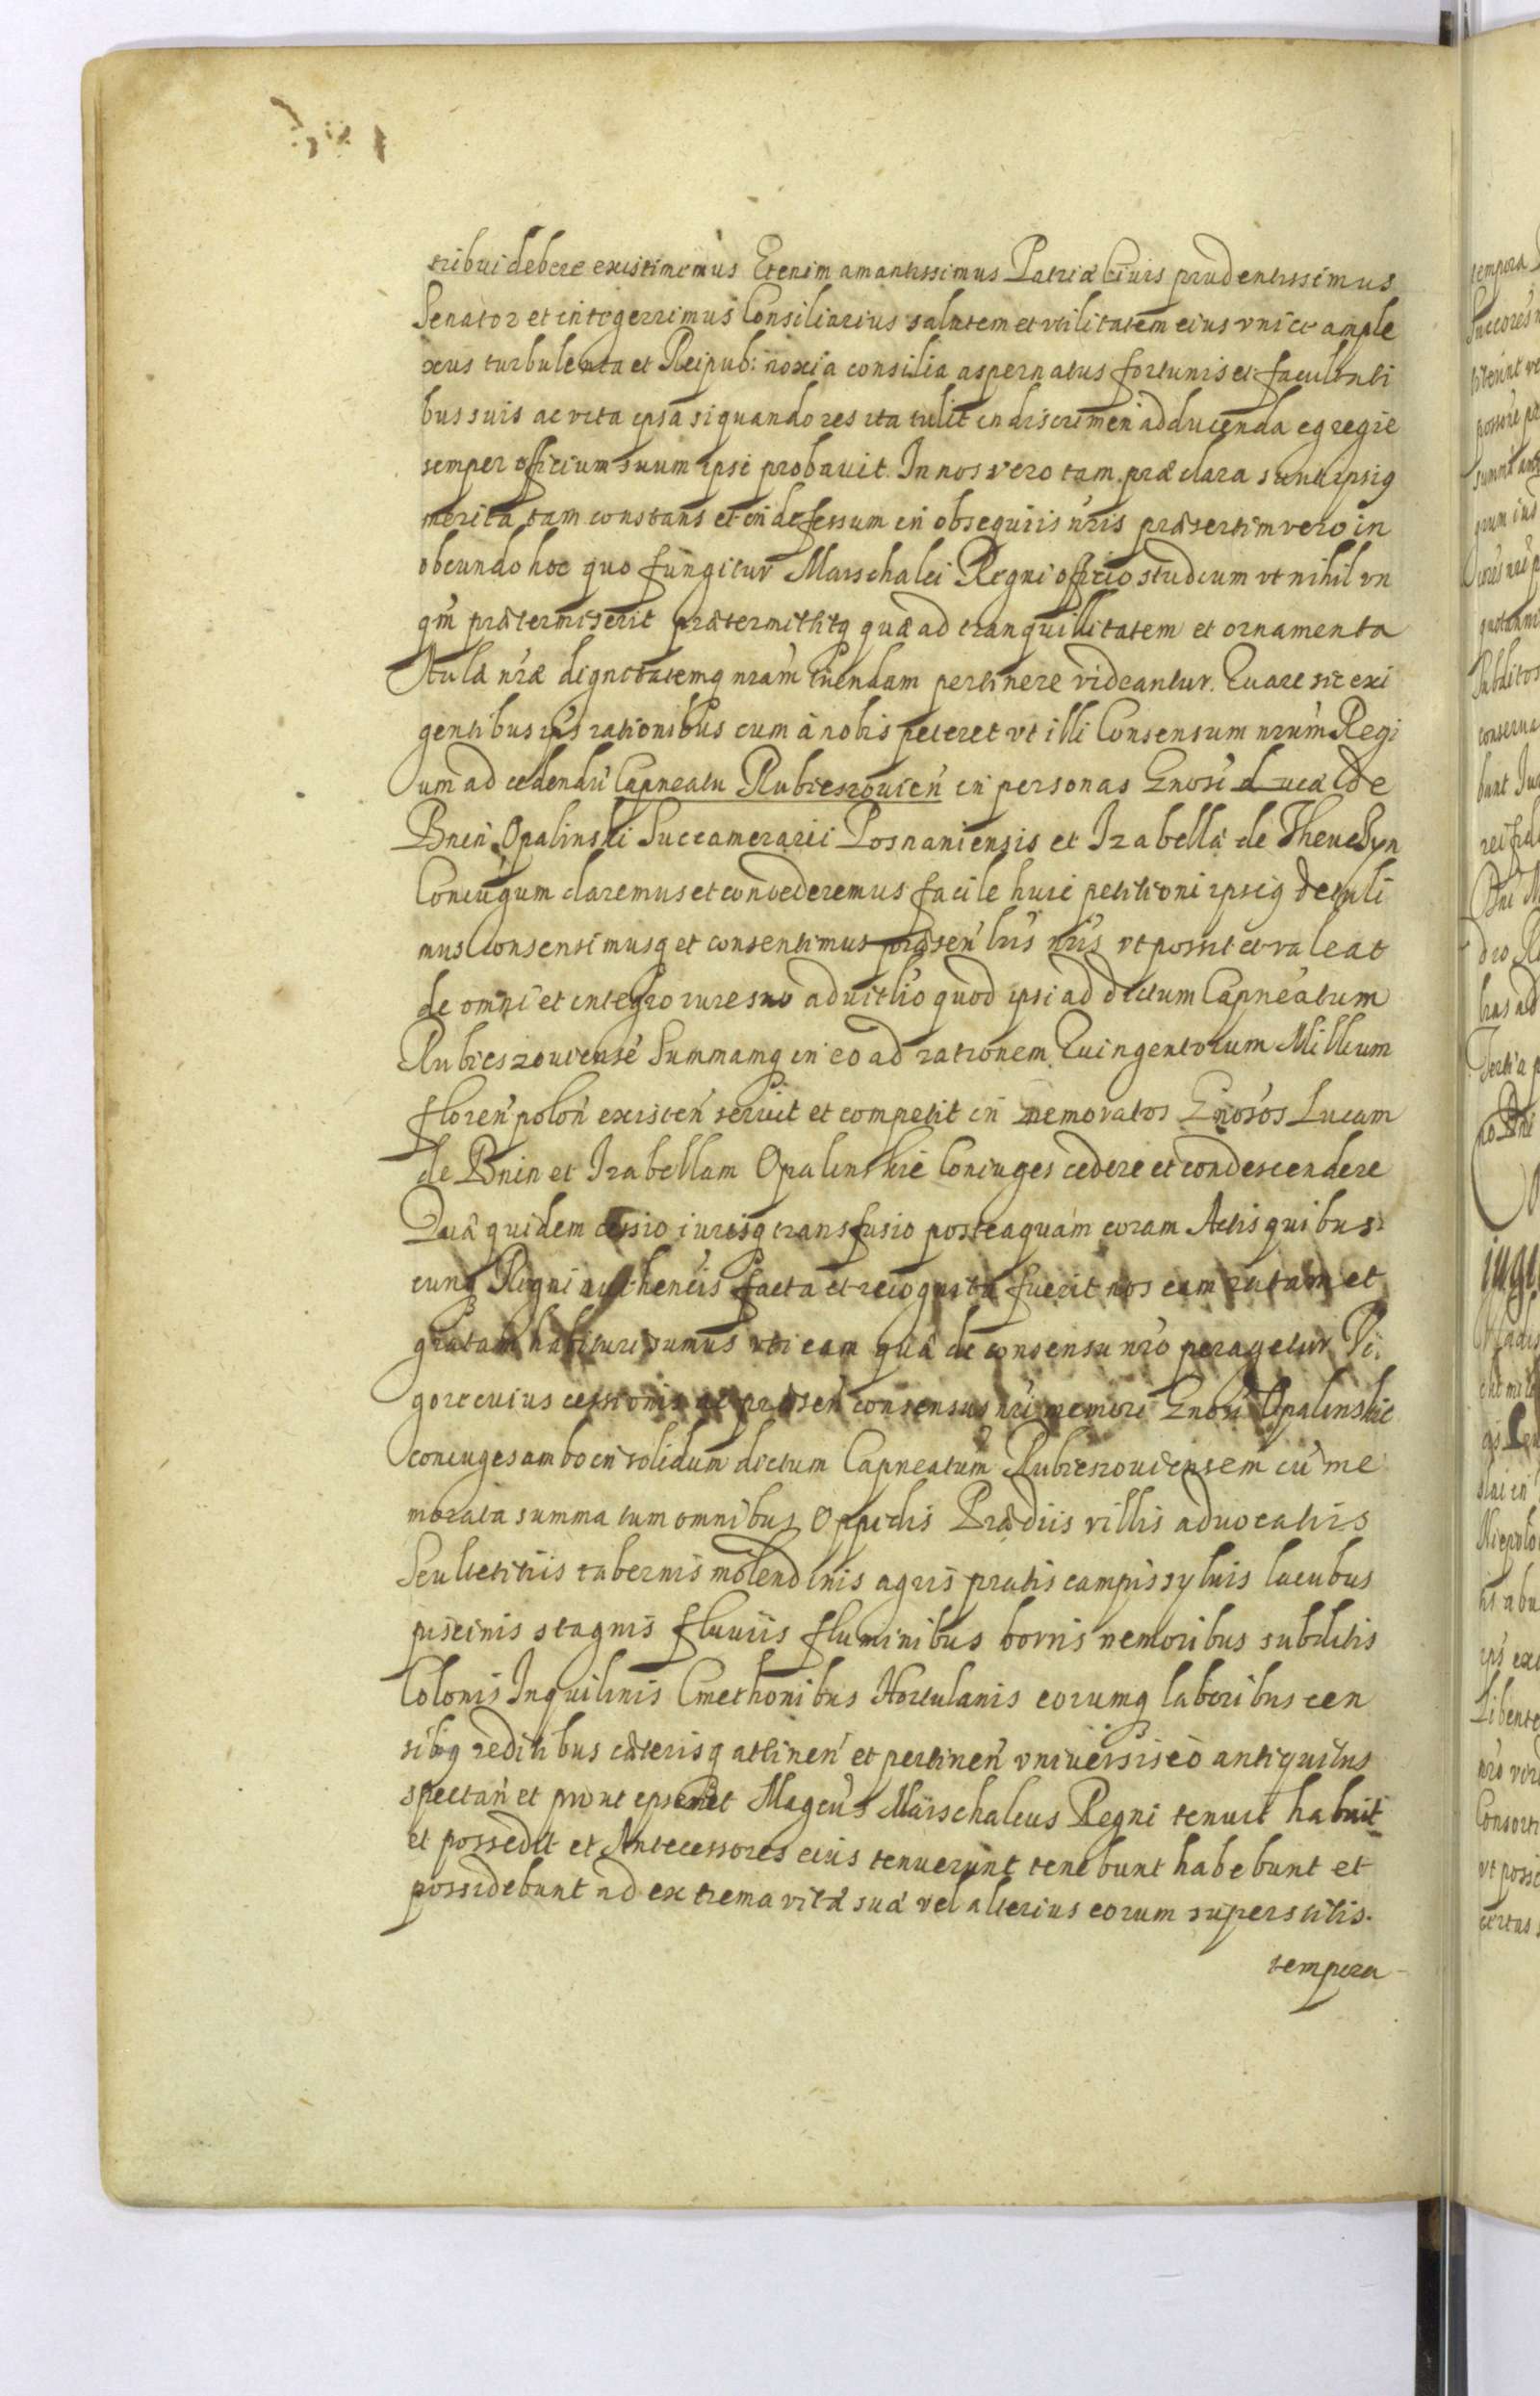 tribui debere existimemus Etenim amantissimus Patriæ Ciuis prudentissimus
Senator et integerrimus Consiliarius salutem et vtilitatem eius vnice ample
xus turbulenta et Reipub: noxia consilia aspernatus fortunis et facultati
bus suis ac vita ipsa si quando res ita tulit in discrimen adducenda egregie
semper officium suum ipse probauit. In nos vero tam præclara sunt ipsiq
merita tam constans et indefessum in obsequiis nr̃is præsertim vero in
obeundo hoc quo fungitur Marschalci Regni officio studium vt nihil vn
qm̃ prætermiserit prætermittitq quæ ad tranquillitatem et ornamenta
Aulæ nr̃æ dignitatemq nram̃ tuendam pertinere videantur. Quare sic exi
gentibus ips̃ rationibus cum à nobis peteret vt illi Consensum nrum̃ Regi
um ad cedendũ Capneatu Rubieszouien̄ in personas Gnosi Lucæ de
Bnin Opalinski Succamerarii Posnaniensis et Izabellæ de Thenczyn
Coniugum daremus et concederemus facile huic petitioni ipsiq detuli
mus consensimusq et consentimus præsen̄ lr̃is nr̃is vt possit et valeat
de omni et integro iure suo aduitl̃io quod ipsi ad dictum Capneatum
Rubieszouiense Summamq in eo ad rationem Quingentorum Millium
floren̄ polon̄ existen̄ seruit et competit in memoratos Gnosos Lucam
de Bnin et Izabellam Opalinskie Coniuges cedere et condescendere
Quæ quidem cessio iurisq transfusio posteaquam coram Actis quibus
cunq Regni authen̄cis facta et recognita fuerit nos eam ratam et
gratam habituri sumus vti eam quæ de consensu nr̃o peragetur Vi
gore cuius cessionis ac præsen̄ consensus nr̃i memori Gnosi Opalinskie
coniuges ambo in solidum dictum Capneatum Rubieszouiensem cũ me
morata summa tum omnibus Oppidis Prædiis villis aduocatiis
Scultetitiis tabernis molendinis agris pratis campis syluis lacubus
piscinis stagnis fluuiis fluminibus borris nemoribus subditis
Colonis Inquilinis Cmethonibus Hortulanis eorumq laboribus cen
sibq reditibus cæterisq attinen̄ et pertinen̄ vniuersis eò antiquitus
spectan̄ et prout ipsemet Magcus̃ Marschalcus Regni tenuit habuit
et possedit et Antecessores eius tenuerunt tenebunt habebunt et
possidebunt ad extrema vitæ suæ vel alterius eorum superstitis.
tempora